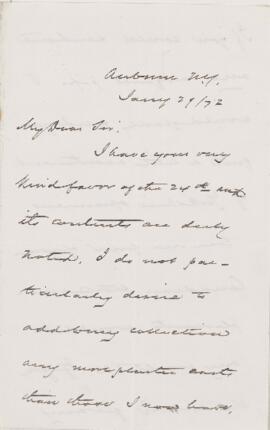 Auburn N.Y.
Jany 29/72
My Dear Sir.
I have your very
kind favor of the 24th inst
its contents are duly
noted. I do not par-
ticularly desire to
add to my collection
any more plaster casts
than those I now have,